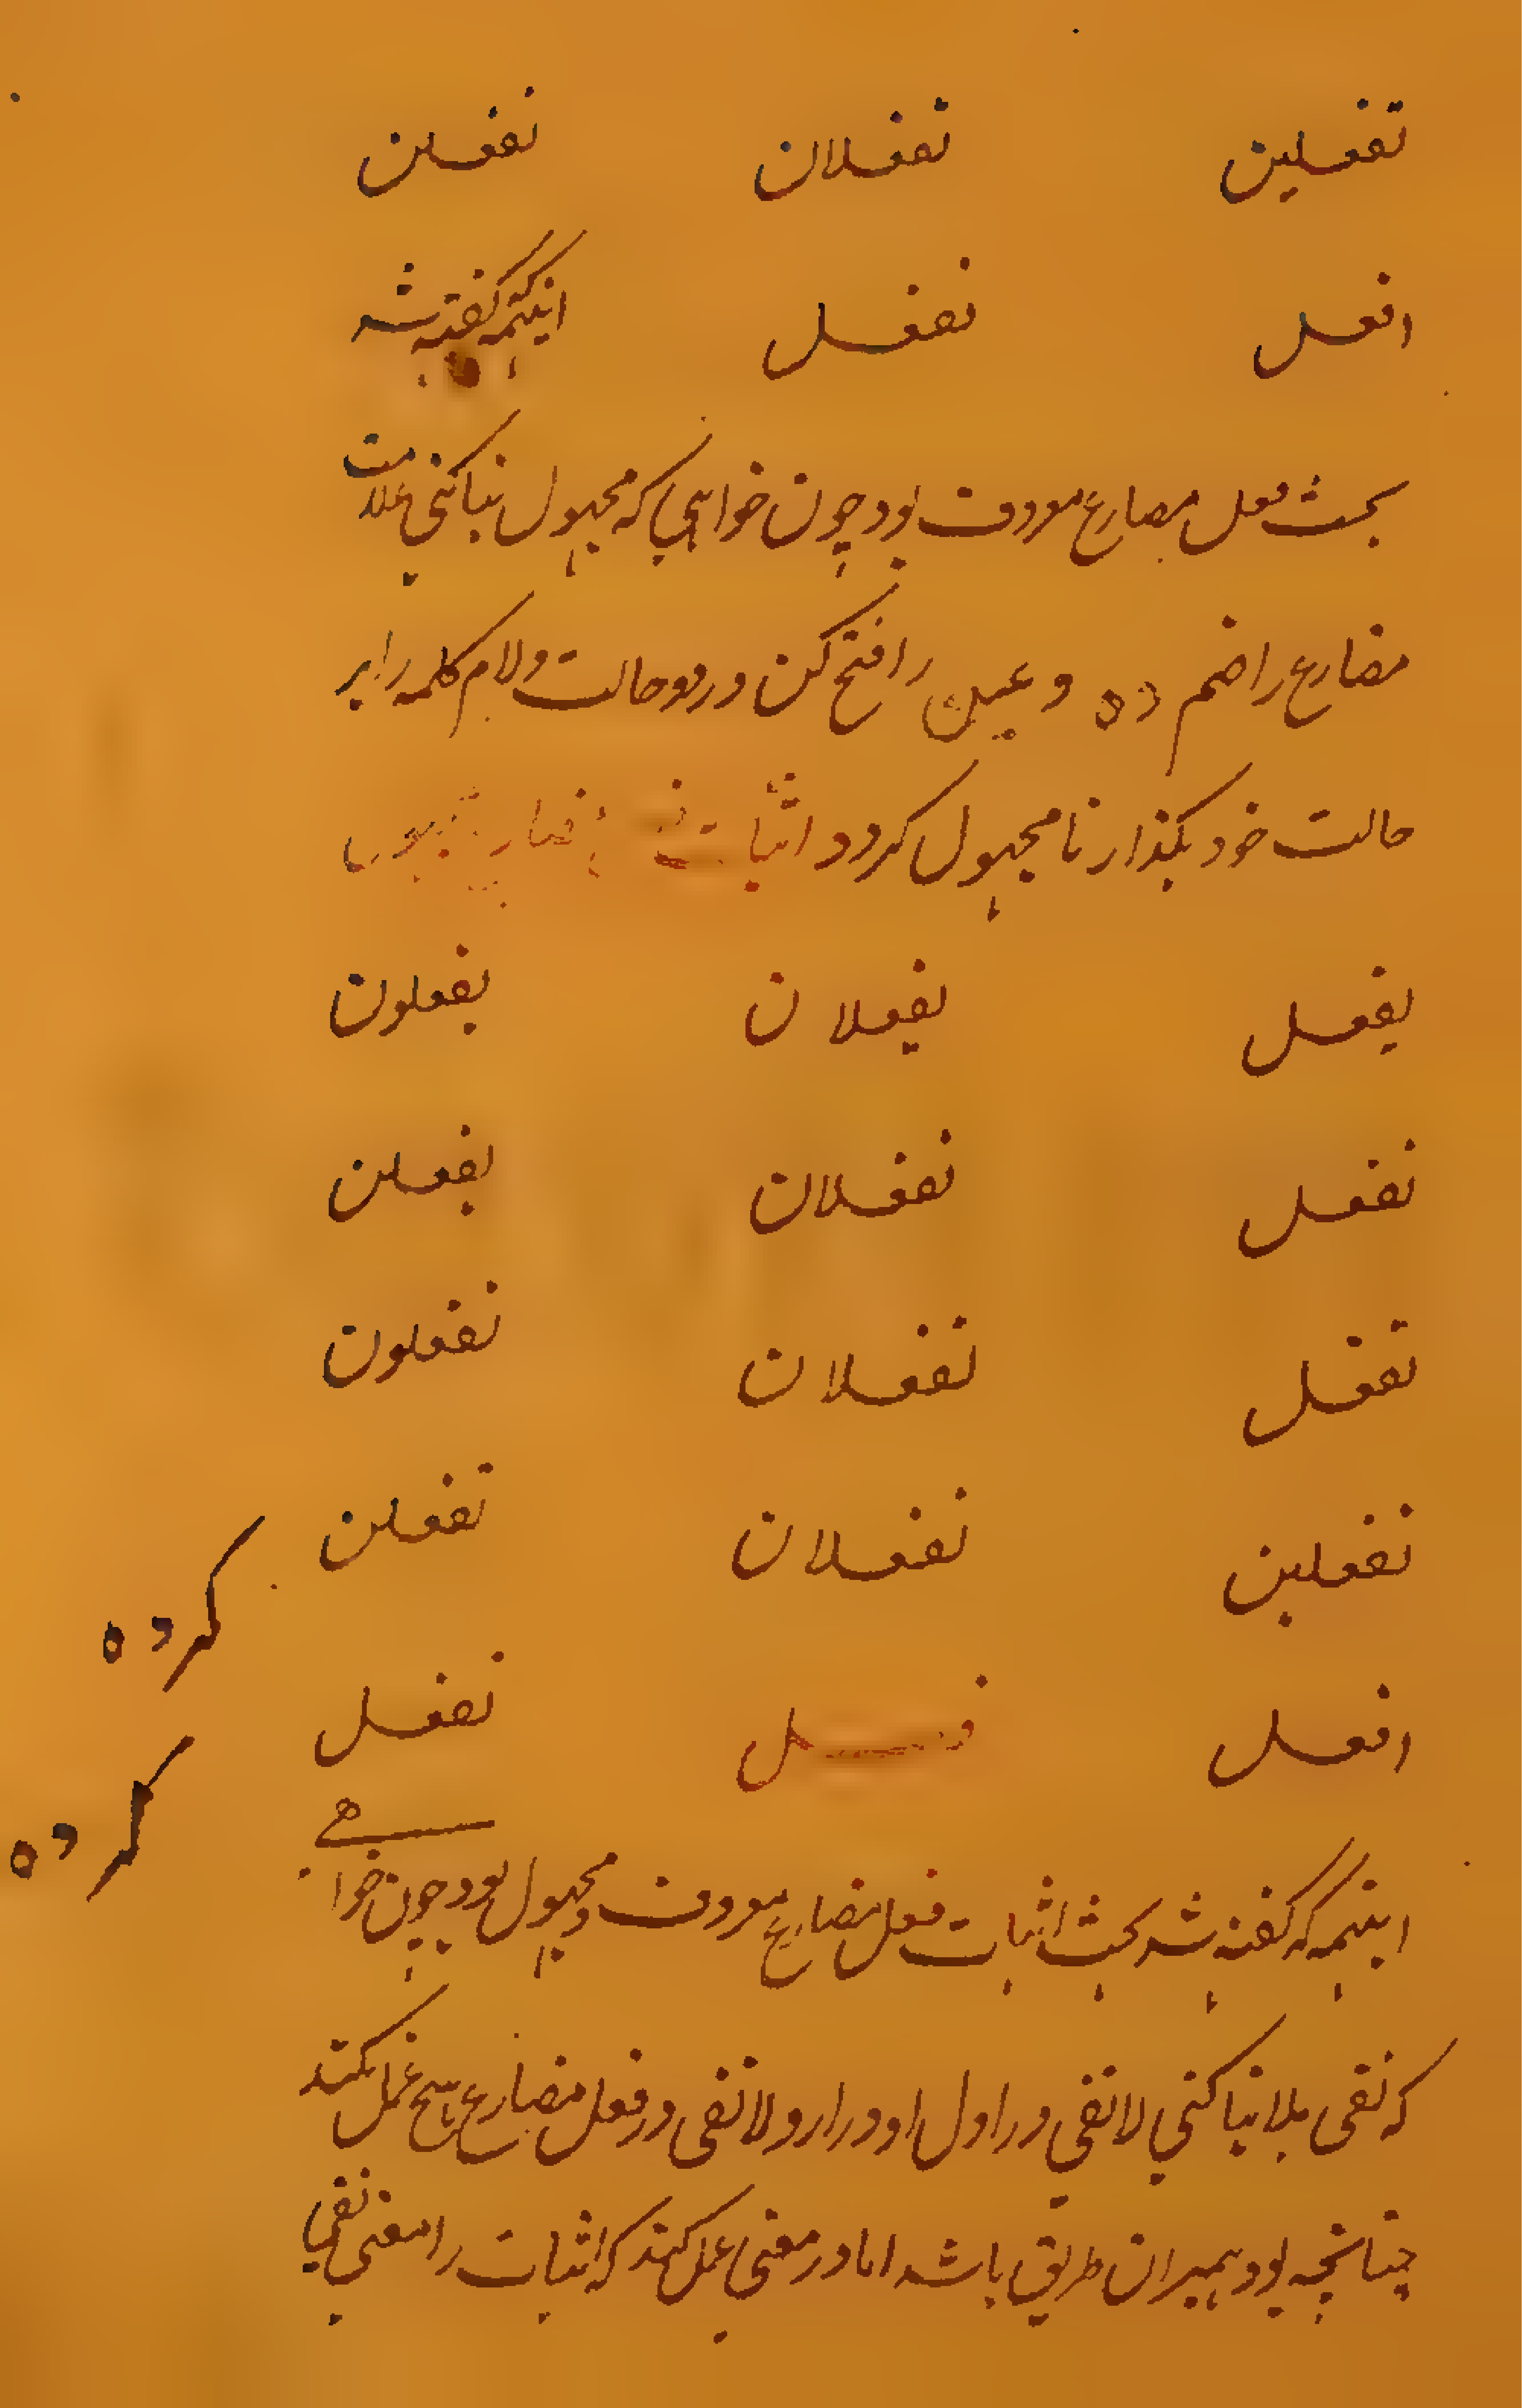 تفعلین تفعلان تفعلن
افعل نفعل اینهمه گفته شد
بحث فعل مضارع معروف بود چون خواهی که مجهول بنا کنی علامت
مضارع را ضم ده و عین را فتح کن در دو حالت و لام کلمه را بر
حالت خود بگذار تا مجهول گردد اثبات فعل مضارع مجهول
یفعل یفعلان یفعلون
تفعل تفعلان یفعلن
تفعل تفعلان تفعلون
تفعلین تفعلان تفعلن
کرده
افعل نفعل
کرده
اینهمه که گفته شد بحث اثبات فعل مضارع معروف و مجهول بود چون خواهی
که نفی بلا بنا کنی لا نفی در اول او در ار و لا نفی در فعل مضارع هیچ عمل نکند
چنانچه بود همبران طریق باشد اما در معنی عمل کند که اثبات را معنی نفی